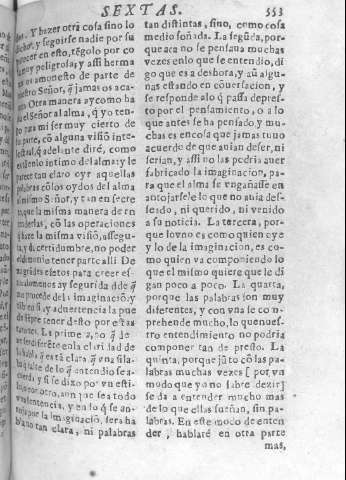 SEXTAS. 553
Y hazer otra cosa sino lo
dicho, y seguirse nadie por su
parecer en esto, tẽgolo por co
muy peligrosa; y assi herma
os amonesto de parte de
nuestro Señor, q̃ jamas os aca-
Otra manera ay como ha
el Señor al alma, q̃ yo ten-
para mi ser muy cierto de
parte, cõ alguna visiõ inte-
lectual, q̃ adelante diré, como
en lo intimo del alma: y le
parece tan claro oyr aquellas
palabras cõ los oydos del alma
al mismo Señor, y tan en secre
to, que la misma manera de en
tenderlas, cõ las operaciones
q̃ haze la misma visiõ, assegu-
ra, y da certidumbre, no poder
el demonio tener parte alli. De
grãdes efetos para creer es-
alomenos ay seguridad de q̃
no procede de la imaginaciõ: y
si ay advertencia la pue
de siẽpre tener desto por estas
razones. La primera, porq̃ de-
ve ser diferẽte en la claridad de
la habla q̃ es tã clara q̃ vna sila-
ba q̃ falte de lo q̃ entendio se a-
cuerda, y si se dixo por vn esti-
lo, o por otro, aunque sea todo
vna sentencia, y en lo q̃ se an-
toja por la imaginaciõ, sera ha
bla no tan clara, ni palabras
tan distintas, sino, como cosa
medio soñada. La següda, por-
que aca no se pensaua muchas
vezes en lo que se entendio, di
go que es a deshora, y aũ algu-
nas estando en cõuersacion, y
se responde a lo q̃ passa depres-
to por el pensamiento, o a lo
que antes se ha pensado, y mu-
chas es en cosa que jamas tuuo
acuerdo de que auian de ser, ni
serian, y assi no las podria auer
fabricado la imaginacion, pa-
ra que el alma se engañasse en
antojarsele lo que no auia des-
seado, ni querido, ni venido
a su noticia. La tercera, por-
que lo vno es como quien oye
y lo de la imaginacion, es co-
mo quien va componiendo lo
que el mismo quiere que le di-
gan poco a poco. La quarta,
porque las palabras son muy
diferentes, y con vna se com-
prehende mucho, lo que nues-
tro entendimiento no podria
componer tan de presto. La
quinta, porque jũto cõ las pa-
labras muchas vezes [ por vn
modo que yo no sabre dezir]
se da a entender mucho mas
de lo que ellas sueñan, sin pa-
labras. En este modo de enten
der, hablaré en otra parte
mas,